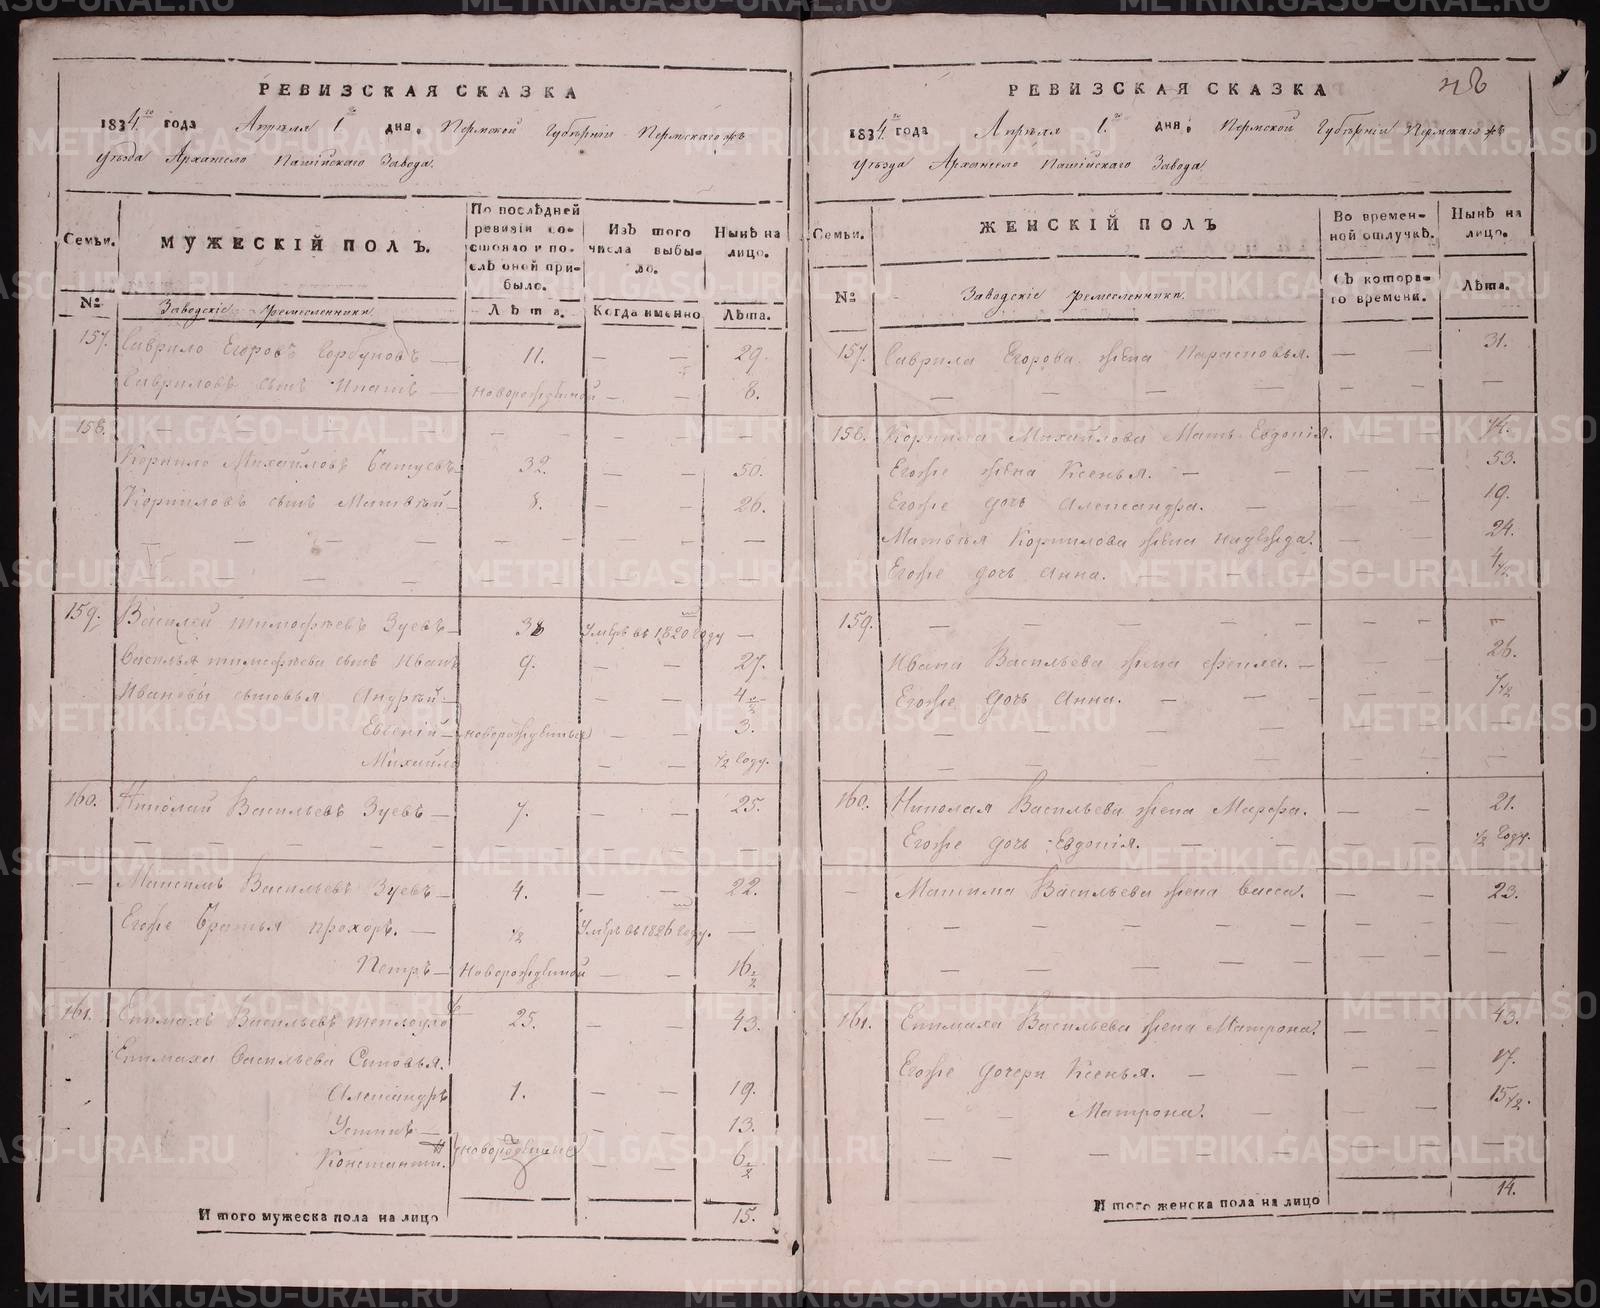 РЕВИЗСКАЯ СКАЗКА
1834.го года Апрѣля 1.го дня. Пермской Губѣрніи Пермскагожъ
Уѣзда Архангело Пашійскаго Завода.
Семьи.
МУЖЕСКІЙ ПОЛЪ.
По послѣдней ревизіи состояло и послѣ оной прибыло.
Изъ того числа выбыло.
Нынѣ на лицо.
№
Заводскіе ремесленники.
Лѣта.
Когда именно
Лѣта.
157. Гаврило Егоровъ Горбуновъ — 11. — — 29.
Гавриловъ сынъ Ипатъ — новорожденной — — 8.
158. — — — — — — —
Корнило Михайловъ — 32. — — 50.
Корниловъ сынъ Матвѣй — 8. — — 26.
159. Василей тимофѣевъ Зуевъ — Умеръ въ 1820 году —
Василья тимофѣева сынъ Иванъ 9. — — 27.
Ивановы сыновья Андрѣй — — — 4 1/2
Евгеній — новорожденные — — 3.
Михайло — — 1/2 году.
160. Николай Васильевъ Зуевъ — 7. — — 25.
— Максимъ Васильевъ Зуевъ — 4. — — 22.
Егоже братья прохоръ. — 1/2 Умеръ въ 1826 году. —
Петръ — Новорожденной — — 16 1/2
161. Епимахъ Васильевъ 25. — — 43.
Епимаха Васильева Сыновья.
Александръ 1. — — 19.
Устинъ — — — 13.
Константин. новорожденные — — 6 1/2
Итого мужеска пола на лицо 15.
РЕВИЗСКАЯ СКАЗКА
1834.го года Апрѣля 1.го дня. Пермской Губѣрніи Пермскагожъ
Уѣзда Архангело Пашійскаго Завода.
Семьи.
ЖЕНСКІЙ ПОЛЪ
Во временной отлучкѣ.
Нынѣ на лицо.
№
Заводскіе ремесленники.
Съ котораго времени.
Лѣта.
157. Гаврила Егорова жена Парасковья. — — 31.
158. Корнила Михайлова Мать Евдокія. — — 74.
Егоже жена Ксенья. — — — 53.
Егоже дочь Александра. — — — 19.
Матвѣя Корнилова жена надежда. — — 24.
Егоже дочь Анна. — — —
159. — — — — — —
Ивана Васильева жена фекла. — — — 26.
Егоже дочь Анна. — — — 7 1/2
160. Николая Васильева жена Марфа. — — 21.
Егоже дочь Евдокія. — — 1/2 году.
— Максима Васильева жена васса. — — 23.
161. Епимаха Васильева жена Матрона. — — 43.
Егоже дочери Ксенья. — — — 17.
— — Матрона. — — — 15 1/2.
Итого женска пола на лицо 14.
METRIKI.GASO-URAL.RU